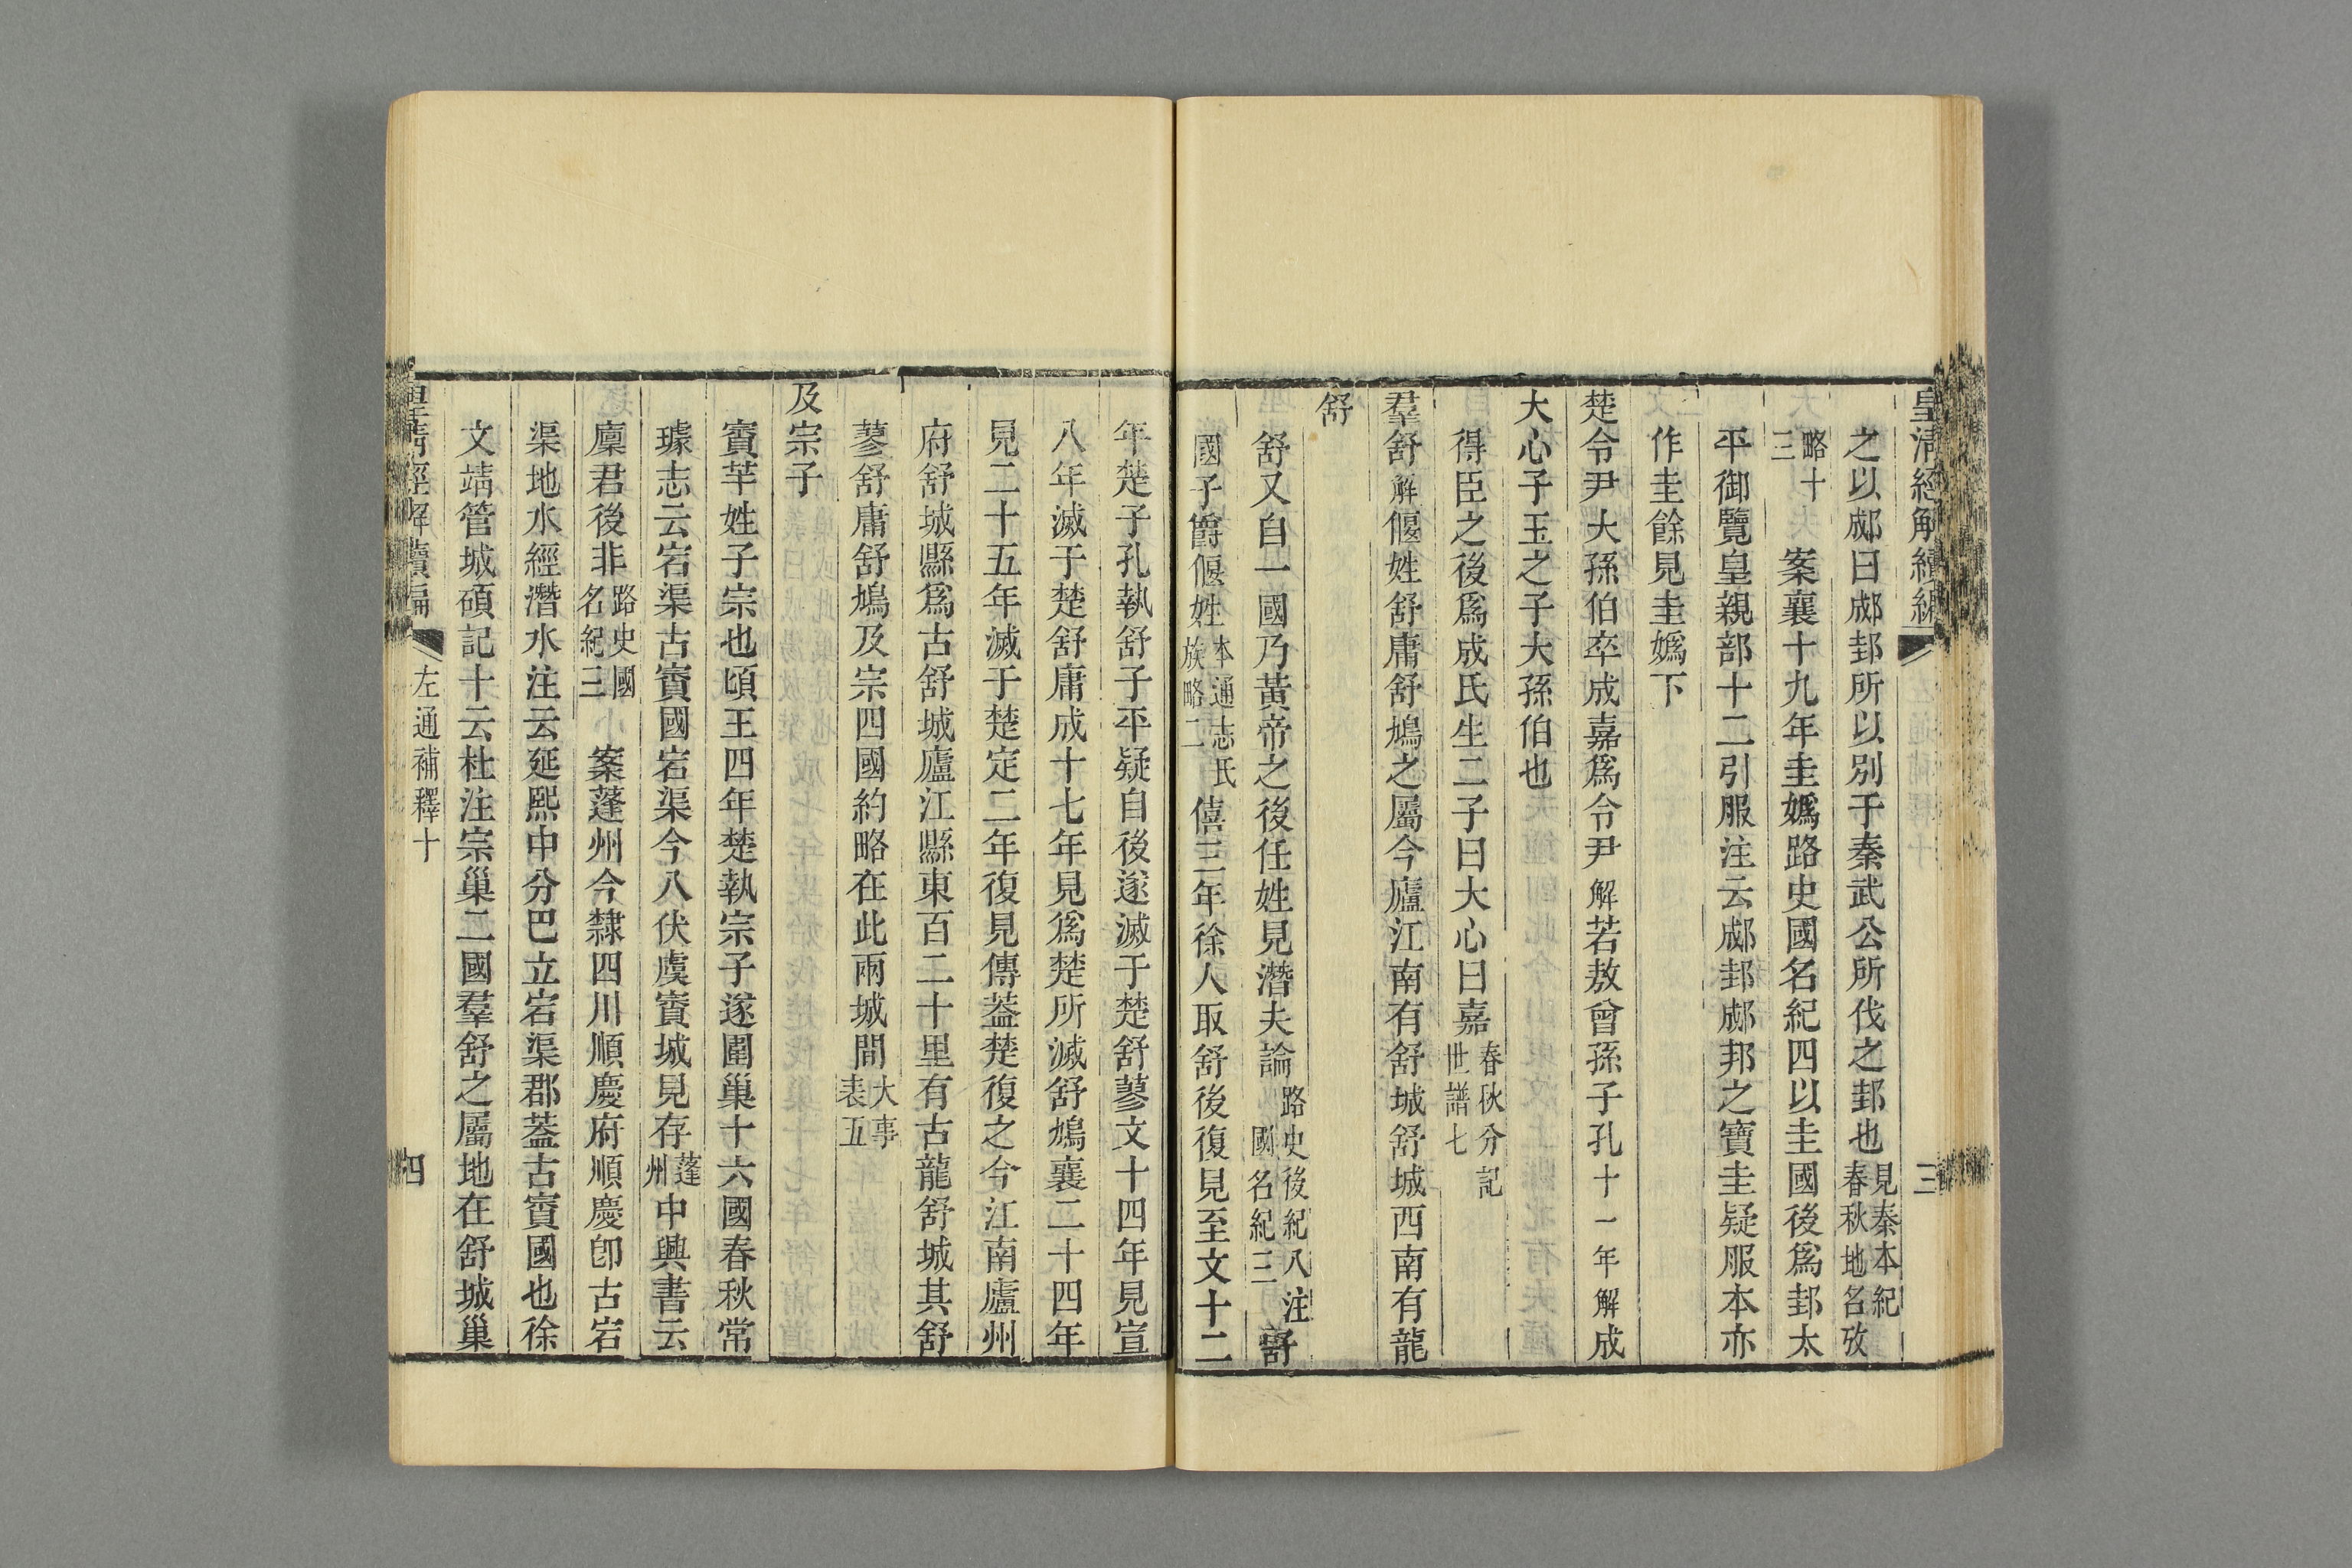 皇清經解續編
三
之以郕曰郕邽所以別于秦武公所伐之邽也見秦本紀春秋地名攷
略十三案襄十九年圭嬀路史國名紀四以圭國後爲邽太
平御覽皇親部十二引服注云郕邽郕邦之寶圭疑服本亦
作圭餘見圭嬀下
楚令尹大孫伯卒成嘉爲令尹解若敖曾孫子孔十一年解成
大心子玉之子大孫伯也
得臣之後爲成氏生二子曰大心曰嘉春秋分記世譜七
羣舒解偃姓舒庸舒鳩之屬今廬江南有舒城舒城西南有龍
舒
舒又自一國乃黃帝之後任姓見潛夫論路史後紀八注國名紀三舒
國子爵偃姓本通志氏族略二僖三年徐人取舒後復見至文十二
年楚子孔執舒子平疑自後遂滅于楚舒蓼文十四年見宣
八年滅于楚舒庸成十七年見爲楚所滅舒鳩襄二十四年
見二十五年滅于楚定二年復見傳葢楚復之今江南廬州
府舒城縣爲古舒城廬江縣東百二十里有古龍舒城其舒
蓼舒庸舒鳩及宗四國約略在此兩城間大事表五
及宗子
賨芊姓子宗也頃王四年楚執宗子遂圍巢十六國春秋常
璩志云宕渠古賨國宕渠今八伏虞賨城見存蓬州中興書云
廩君後非路史國名紀三案蓬州今隸四川順慶府順慶卽古宕
渠地水經潛水注云延熙中分巴立宕渠郡葢古賨國也徐
文靖管城碩記十云杜注宗巢二國羣舒之屬地在舒城巢
皇清經解續編
左通補釋十
四